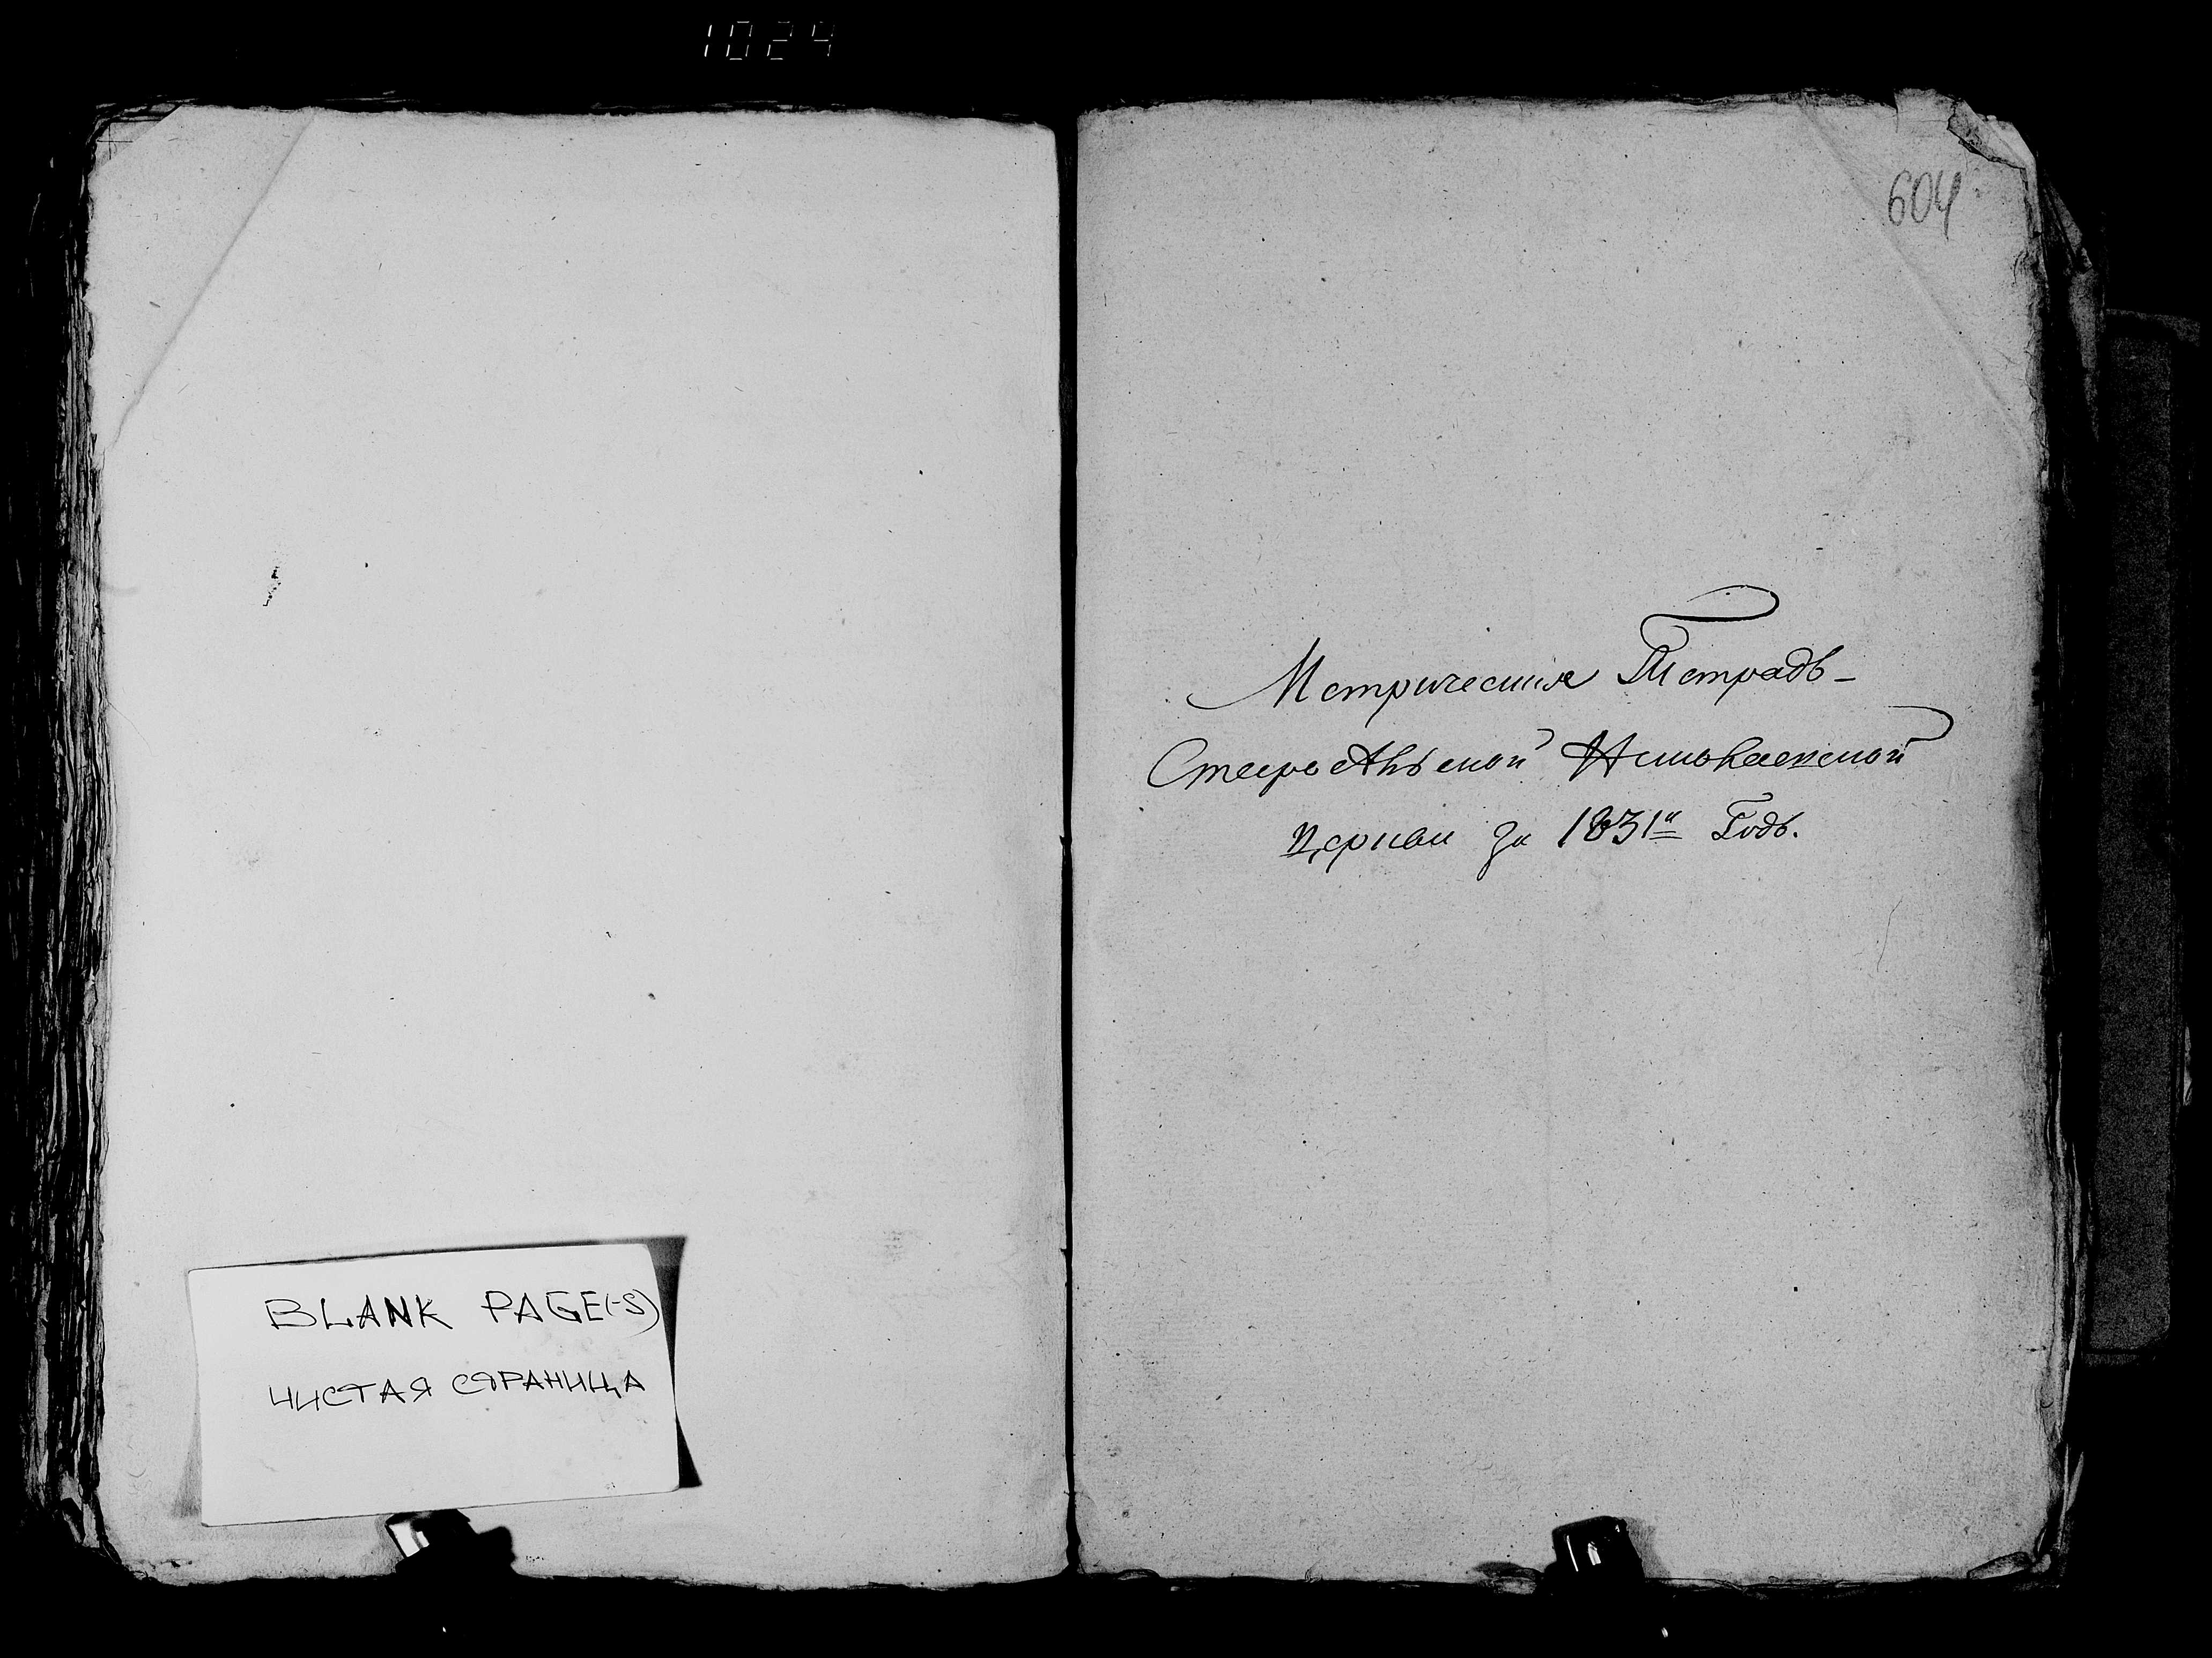 1024
604
Метрическия Тетрадь
Николаевской
церкви за 1831й Годъ.
BLANK PAGE(-S)
ЧИСТАЯ СТРАНИЦА